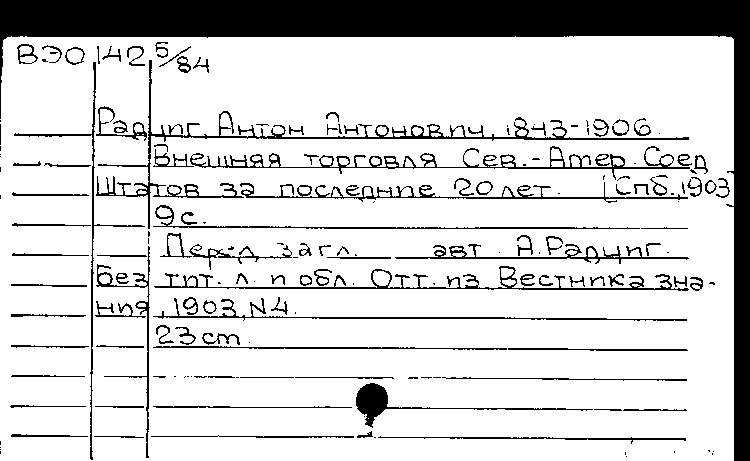 ВЭО 142 5/84
Радциг, Антон Антонович, 1843-1906.
Внешняя торговля Сев.-Амер. Соед
Штатов за последние 20 лет. [Спб., 1903]
9 с.
Перед загл. авт А. Радциг.
Без тит. л. и обл. Отт. из Вестника зна-
ния, 1903, N4.
23 cm